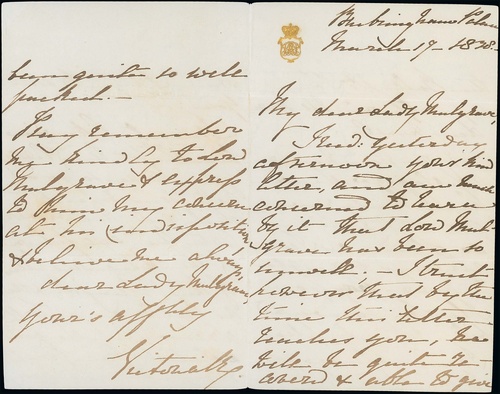 Buckingham Palace
March 19 - 1838.-
My dear Lady Mulgrave,
I recd: yesterday
afternoon your kind
letter, and am much
concerned to learn
by it that Lord Mul-
grave has been so
unwell. - I trust
however that by the
time this letter
reaches you, he
will be quite re-
covered & able to give
been quite so well
packed. -
Pray remember
me kindly to Lord
Mulgrave & express
to him my concern
at his indisposition,
& believe me always,
dear Lady Mulgrave,
your's affly
Victoria R.